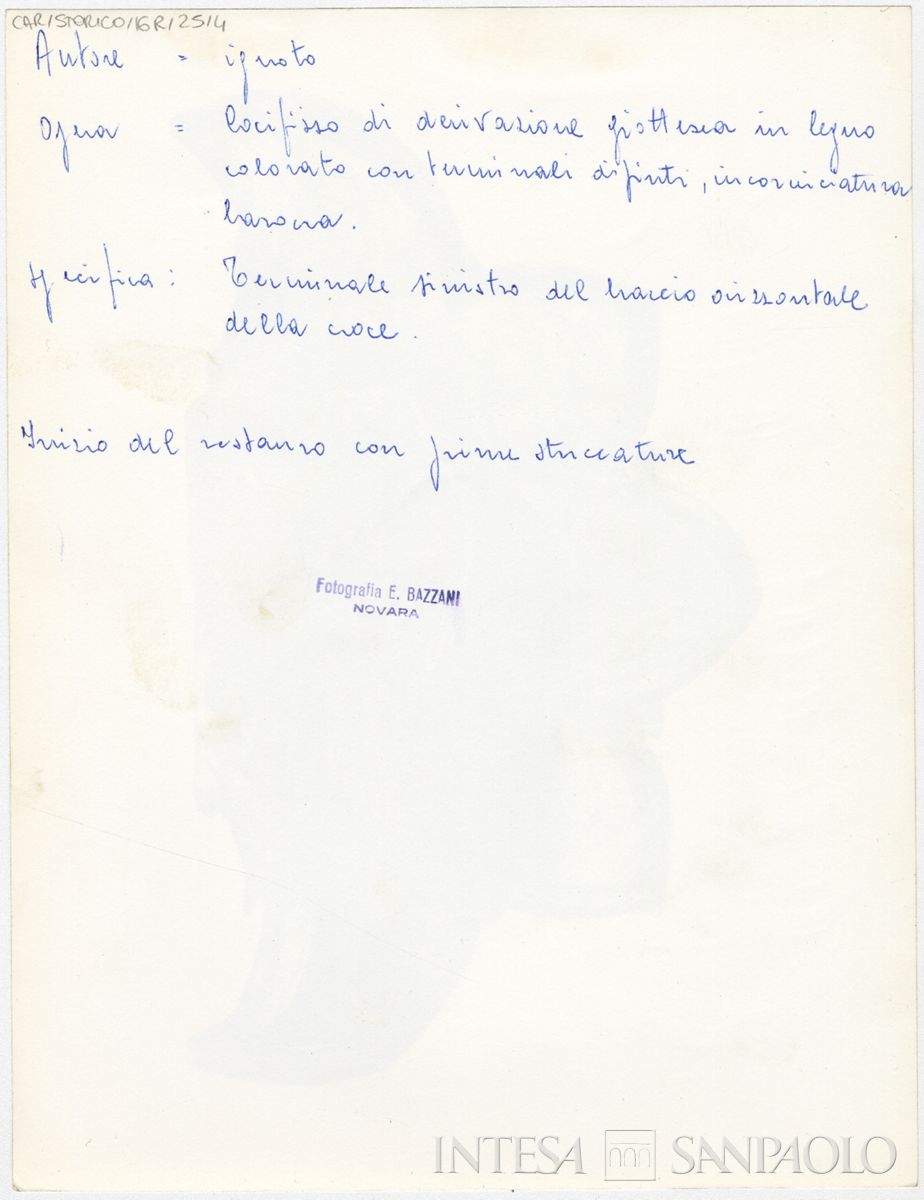 CAR/STORICO/16R/25/4
Autore = ignoto
Opera = Crocifisso di derivazione giottesca in legno
colorato con terminali dipinti, incorniciatura
barocca.
specifica: Terminale sinistro del braccio orizzontale
della croce.
Inizio del restauro con prime stuccature
Fotografia E. BAZZANI
NOVARA
INTESA SANPAOLO